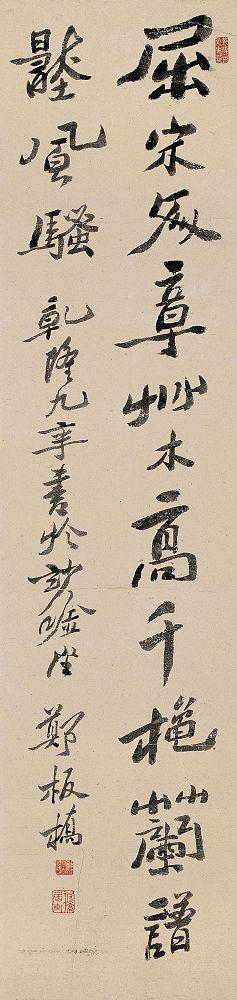 屈宋文章艸木高千穐蘭譜
壓風騷
乾隆九年書於
鄭板橋